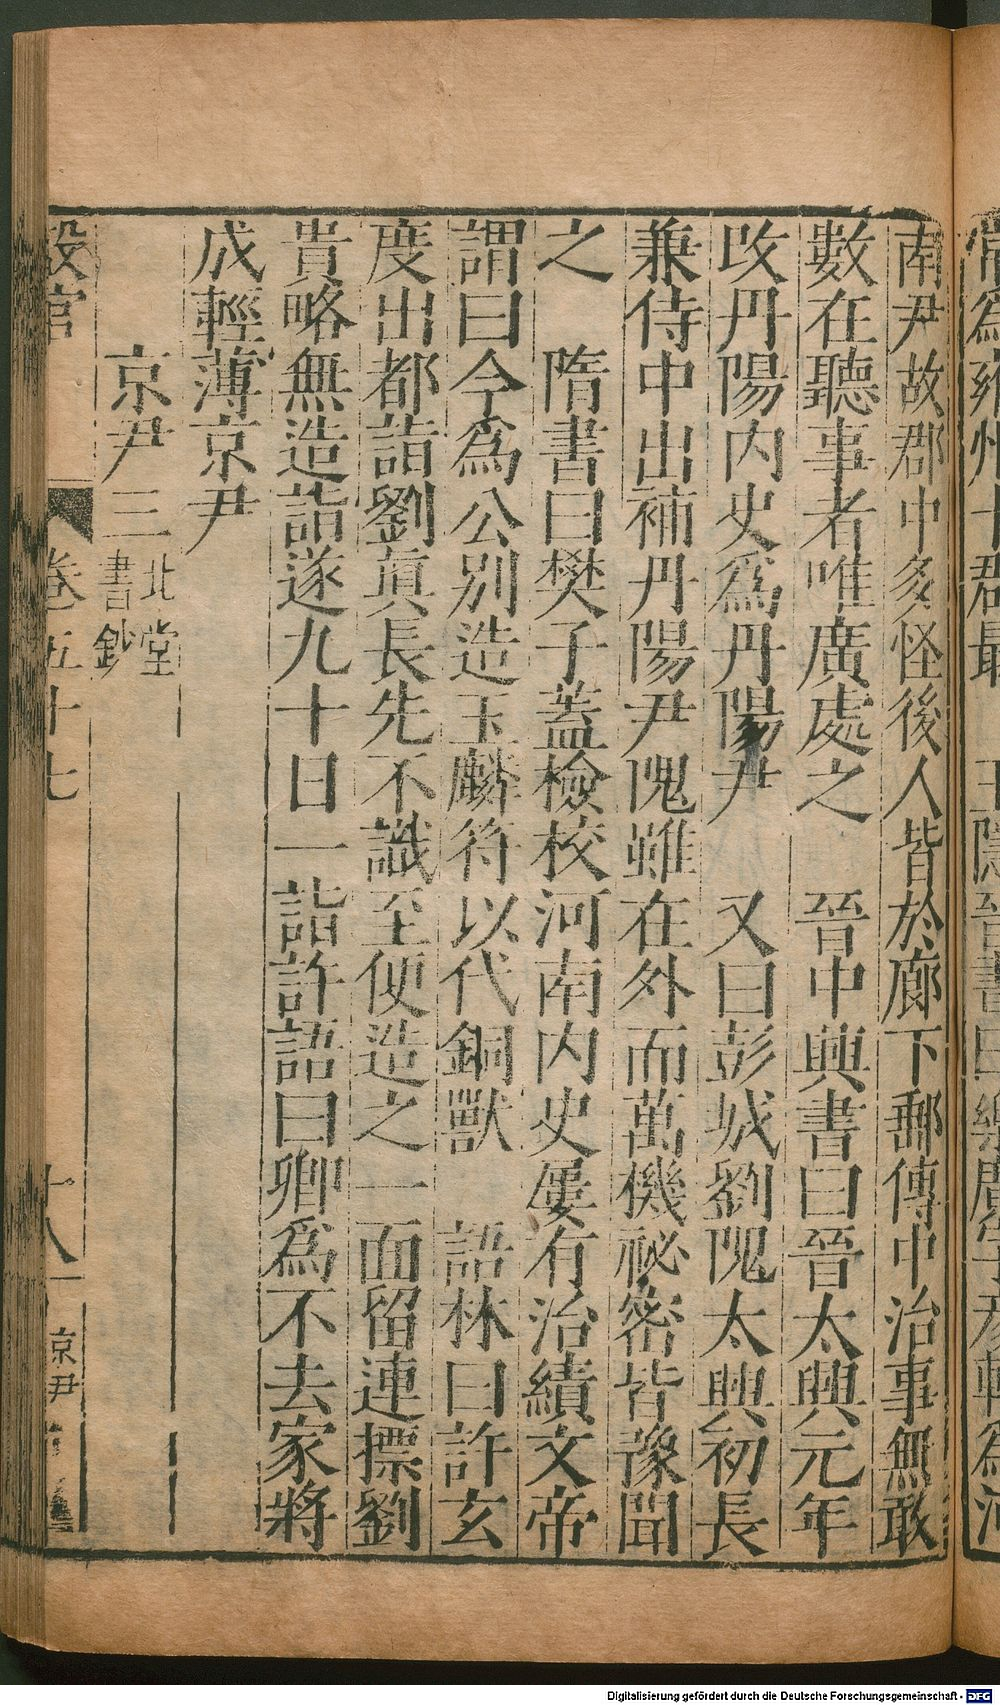 南尹故郡中多怪後人皆於廊下郵傳中治事無敢
數在聽事者唯廣處之 晉中興書曰晉太興元年
改丹陽內史爲丹陽尹 又曰彭城劉隗太興初長
兼侍中出補丹陽尹隗雖在外而萬機祕密皆豫聞
之 隋書曰樊子蓋檢校河南內史屢有治績文帝
謂曰今爲公別造玉麟符以代銅獸 語林曰許玄
度出都詣劉眞長先不識至便造之一面留連摽劉
貴略無造詣遂九十日一詣許語曰卿爲不去家將
成輕薄京尹
京尹三 北堂書鈔
設官 卷五十七 十八 京尹
Digitalisierung gefördert durch die Deutsche Forschungsgemeinschaft - DFG